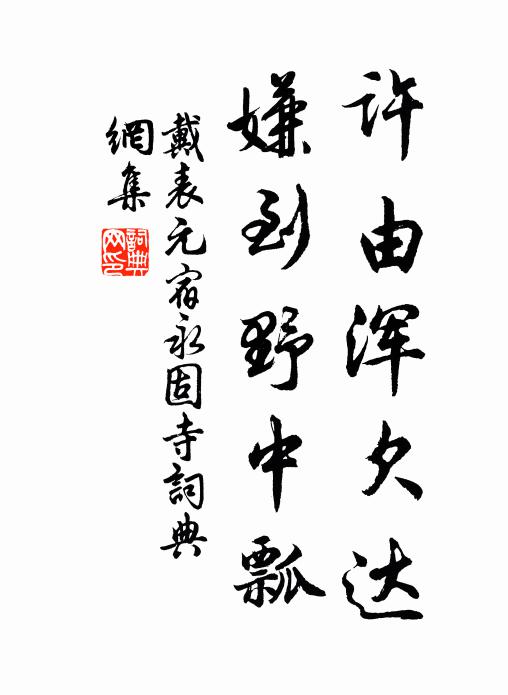 许由浑欠达
嫌到野中瓢
戴表元宿永固寺詞典
網集
詞典网印